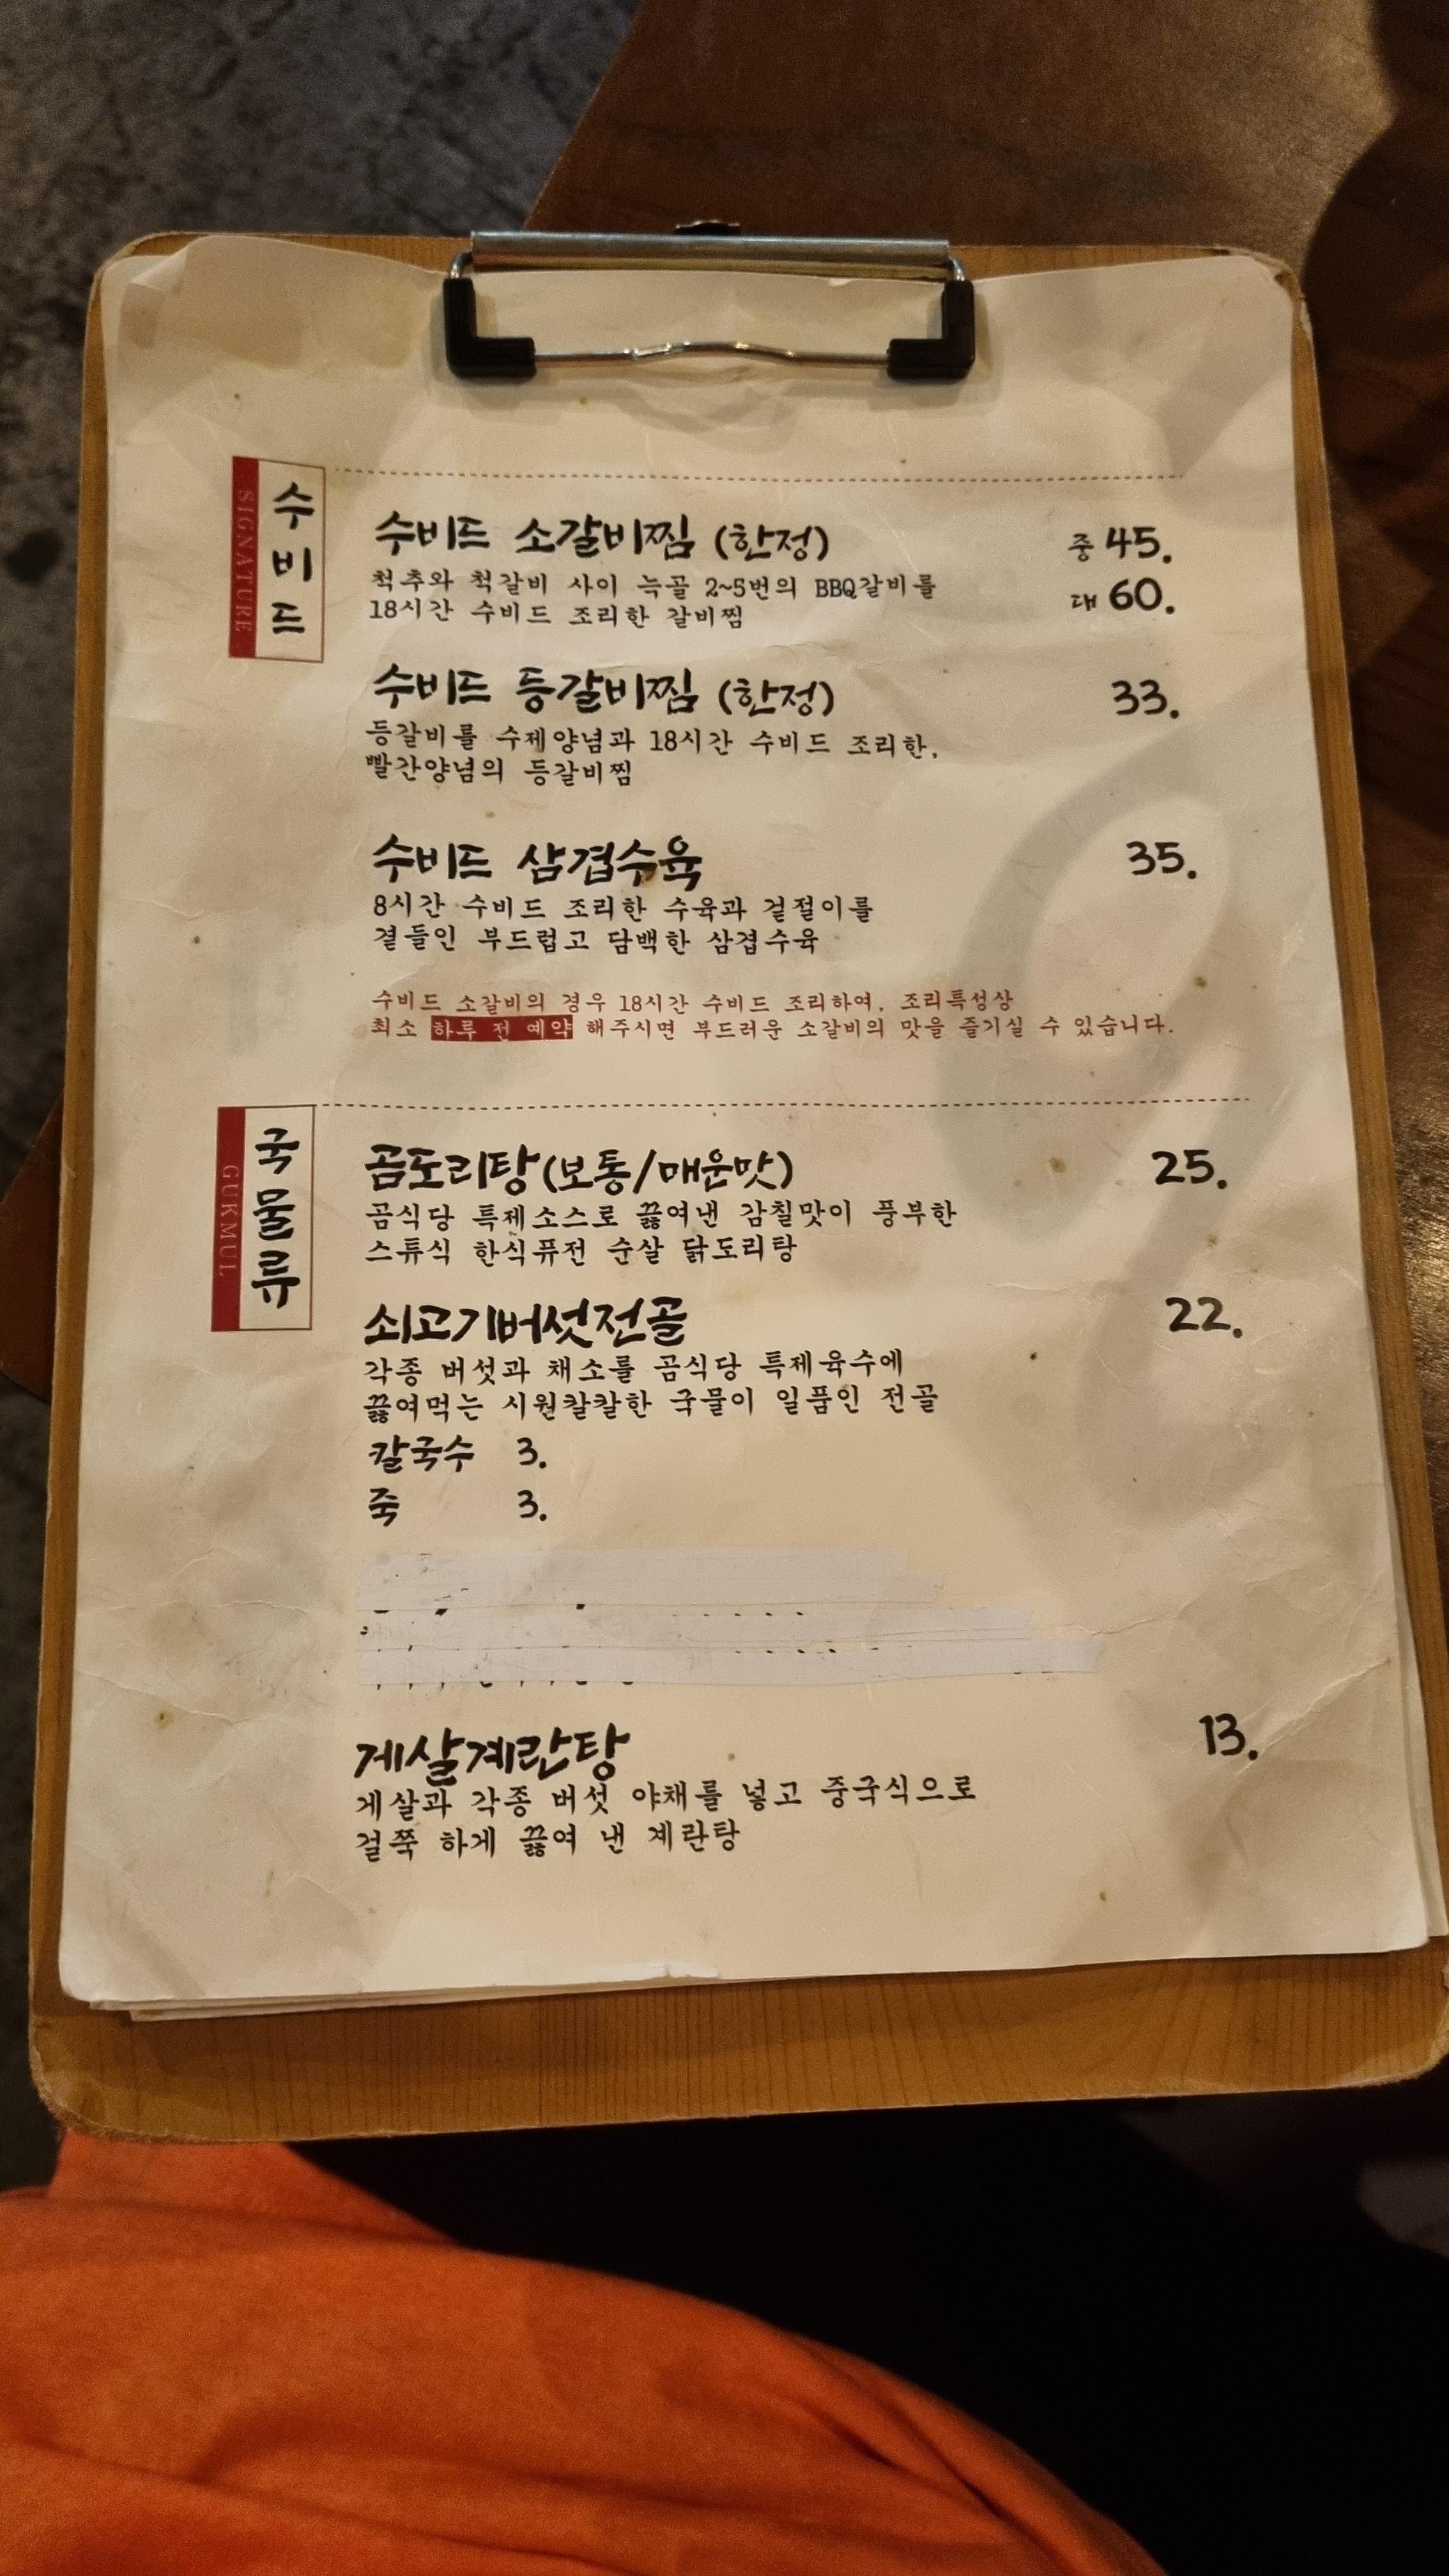 수비드
SIGNATURE
수비드 소갈비찜 (한정)
중 45.
척추와 척갈비 사이 늑골 2~5번의 BBQ갈비를
대 60.
18시간 수비드 조리한 갈비찜
수비드 등갈비찜 (한정)
33.
등갈비를 수제양념과 18시간 수비드 조리한,
빨간양념의 등갈비찜
수비드 삼겹수육
35.
8시간 수비드 조리한 수육과 겉절이를
곁들인 부드럽고 담백한 삼겹수육
수비드 소갈비의 경우 18시간 수비드 조리하여, 조리특성상
최소 하루 전 예약 해주시면 부드러운 소갈비의 맛을 즐기실 수 있습니다.
국물류
GUKMUL
곰도리탕(보통/매운맛)
25.
곰식당 특제소스로 끓여낸 감칠맛이 풍부한
스튜식 한식퓨전 순살 닭도리탕
쇠고기버섯전골
22.
각종 버섯과 채소를 곰식당 특제육수에
끓여먹는 시원칼칼한 국물이 일품인 전골
칼국수 3.
죽 3.
게살계란탕
13.
게살과 각종 버섯 야채를 넣고 중국식으로
걸쭉 하게 끓여 낸 계란탕